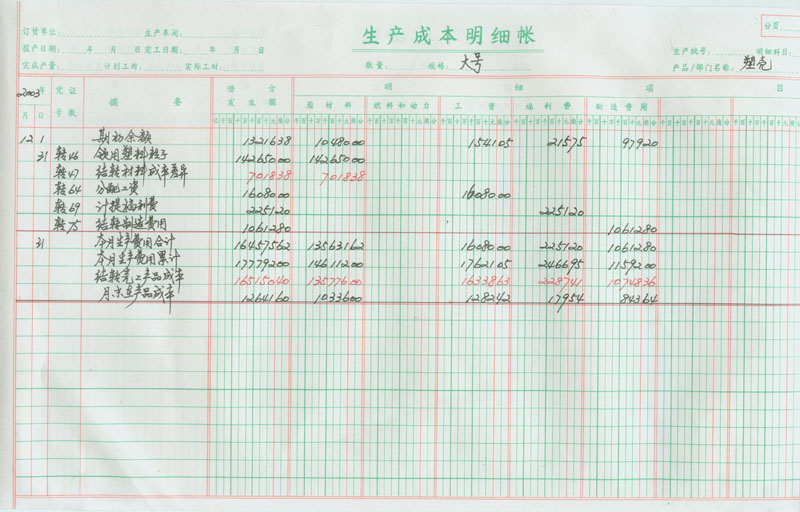 生产成本明细帐
分页
订货单位: 生产车间:
投产日期: 年 月 日 完工日期: 年 月 日 生产批号: 明细科目:
完成产量: 计划工时: 实际工时: 数量: 规格: 大号 产品/部门名称: 塑壳
2003年 凭证 摘要 借方 明细项目
月 日 号数 发生额 原材料 燃料和动力 工资 福利费 制造费用
12 1 期初余额 1321638 1048000 154105 21575 97920
31 转46 领用塑料粒子 14265000 14265000
转47 结转材料成本差异 701838 701838
转64 分配工资 1608000 1608000
转69 计提福利费 225120 225120
转75 结转制造费用 1061280 1061280
31 本月生产费用合计 16457562 13563162 1608000 225120 1061280
本月生产费用累计 17779200 14611200 1762105 246695 1159200
结转完工产品成本 16515040 13577600 1633863 228741 1074836
月末在产品成本 1264160 1033600 128242 17954 84364